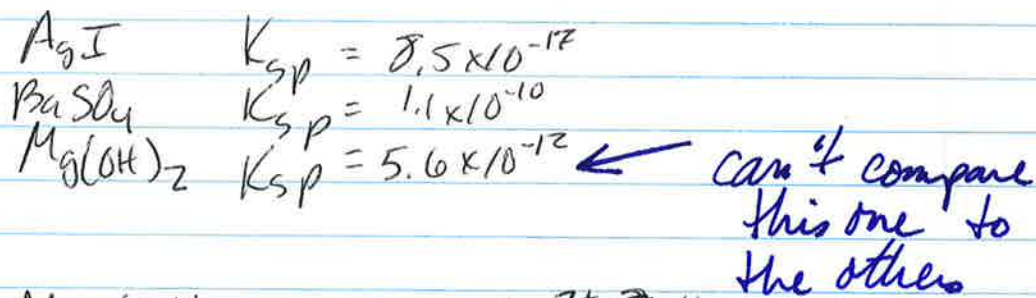 AgI Ksp = 8.5 x10⁻¹⁷
BaSO₄ Ksp = 1.1 x10⁻¹⁰
Mg(OH)₂ Ksp = 5.6 x10⁻¹² ←
can't compare
this one to
the others